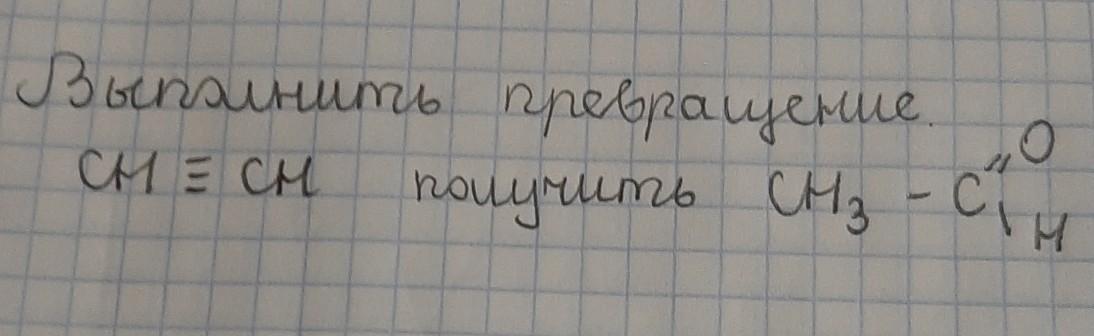 Выполнить превращение.
CH ≡ CH получить CH₃ - C = O
\ H